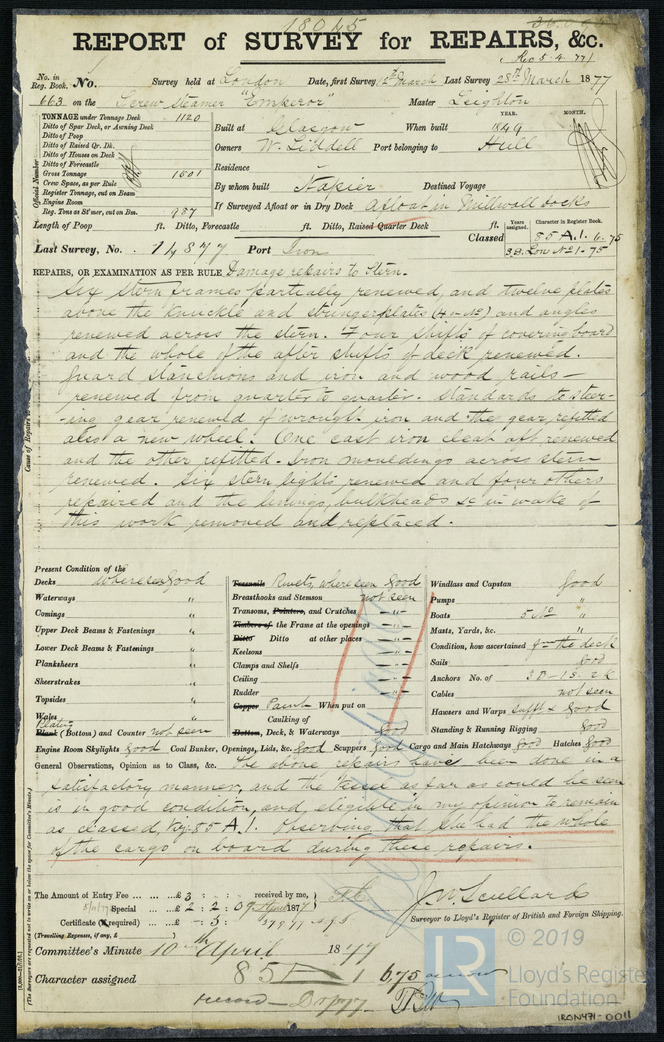 18045
REPORT of SURVEY for REPAIRS, &c.
(Rec 5.4.77)
No. in Reg. Book. No. Survey held at London Date, first Survey 12th March Last Survey 28th March 1877
663 on the Screw Steamer "Emperor" Master Leighton
TONNAGE under Tonnage Deck 1120
Ditto of Spar Deck, or Awning Deck
Ditto of Poop
Ditto of Raised Qr. Dk.
Ditto of Houses on Deck
Ditto of Forecastle
Gross Tonnage 1501
Crew Space, as per Rule
Register Tonnage, cut on Beam
Engine Room
Reg. Tons as St'mer, cut on Bm. 987
Official Number
YEAR. MONTH.
Built at Glasgow When built 1849
Owners W. Liddell Port belonging to Hull
Residence
By whom built Napier Destined Voyage
If Surveyed Afloat or in Dry Dock Afloat in Millwall Docks
Length of Poop ft. Ditto, Forecastle ft. Ditto, Raised Quarter Deck ft.
Years assigned. Character in Register Book.
Classed 85 A.1. 6.75
S.S. Lon No 1-75
Last Survey, No. 14877 Port Iron
REPAIRS, OR EXAMINATION AS PER RULE Damage repairs to Stern.
Six stern frames partially renewed, and twelve plates
above the knuckle and stringerplates (4-No) and angles
renewed across the stern. Four shifts of coveringboard
and the whole of the after shifts of deck renewed.
Guard stanchions and iron and wood rails
renewed from quarter to quarter. Standards to steer-
-ing gear renewed of wrought iron and the gear refitted
also a new wheel. One cast iron cleat aft renewed
and the other refitted. Iron mouldings across stern
renewed. Six stern lights renewed and four others
repaired and the linings, bulkheads &c in wake of
this work removed and replaced.
Present Condition of the
Decks where seen Good
Waterways "
Comings "
Upper Deck Beams & Fastenings "
Lower Deck Beams & Fastenings "
Planksheers "
Sheerstrakes "
Topsides "
Wales "
Plating
Plank (Bottom) and Counter not seen
Treenails Rivets, where seen Good
Breasthooks and Stemson not seen
Transoms, Pointers, and Crutches "
Timbers of the Frame at the openings "
Ditto Ditto at other places "
Keelsons "
Clamps and Shelfs "
Ceiling "
Rudder "
Copper Paint When put on
Caulking of
Bottom, Deck, & Waterways Good
Windlass and Capstan Good
Pumps "
Boats 5 No "
Masts, Yards, &c. "
Condition, how ascertained fm the deck
Sails Good
Anchors No. of 3B-1S-2K
Cables not seen
Hawsers and Warps Sufft & Good
Standing & Running Rigging Good
Engine Room Skylights Good Coal Bunker, Openings, Lids, &c. Good Scuppers Good Cargo and Main Hatchways Good Hatches Good
General Observations, Opinion as to Class, &c. The above repairs have been done in a
satisfactory manner, and the Vessel as far as could be seen
is in good condition, and, eligible in my opinion to remain
as classed, viz. 85 A.1. Observing that she had the whole
of the cargo on board during these repairs.
The Amount of Entry Fee ... £3 : : received by me,
Special ... £2 : 2 : 0 1877
Certificate (if required) ... - 5 :
(Travelling Expenses, if any, £ )
J. W. Scullard
Surveyor to Lloyd's Register of British and Foreign Shipping.
Committee's Minute 10th April 1877
Character assigned 85 A 1 6,75
LR
© 2019
Lloyd's Register
Foundation
IRON471-0011